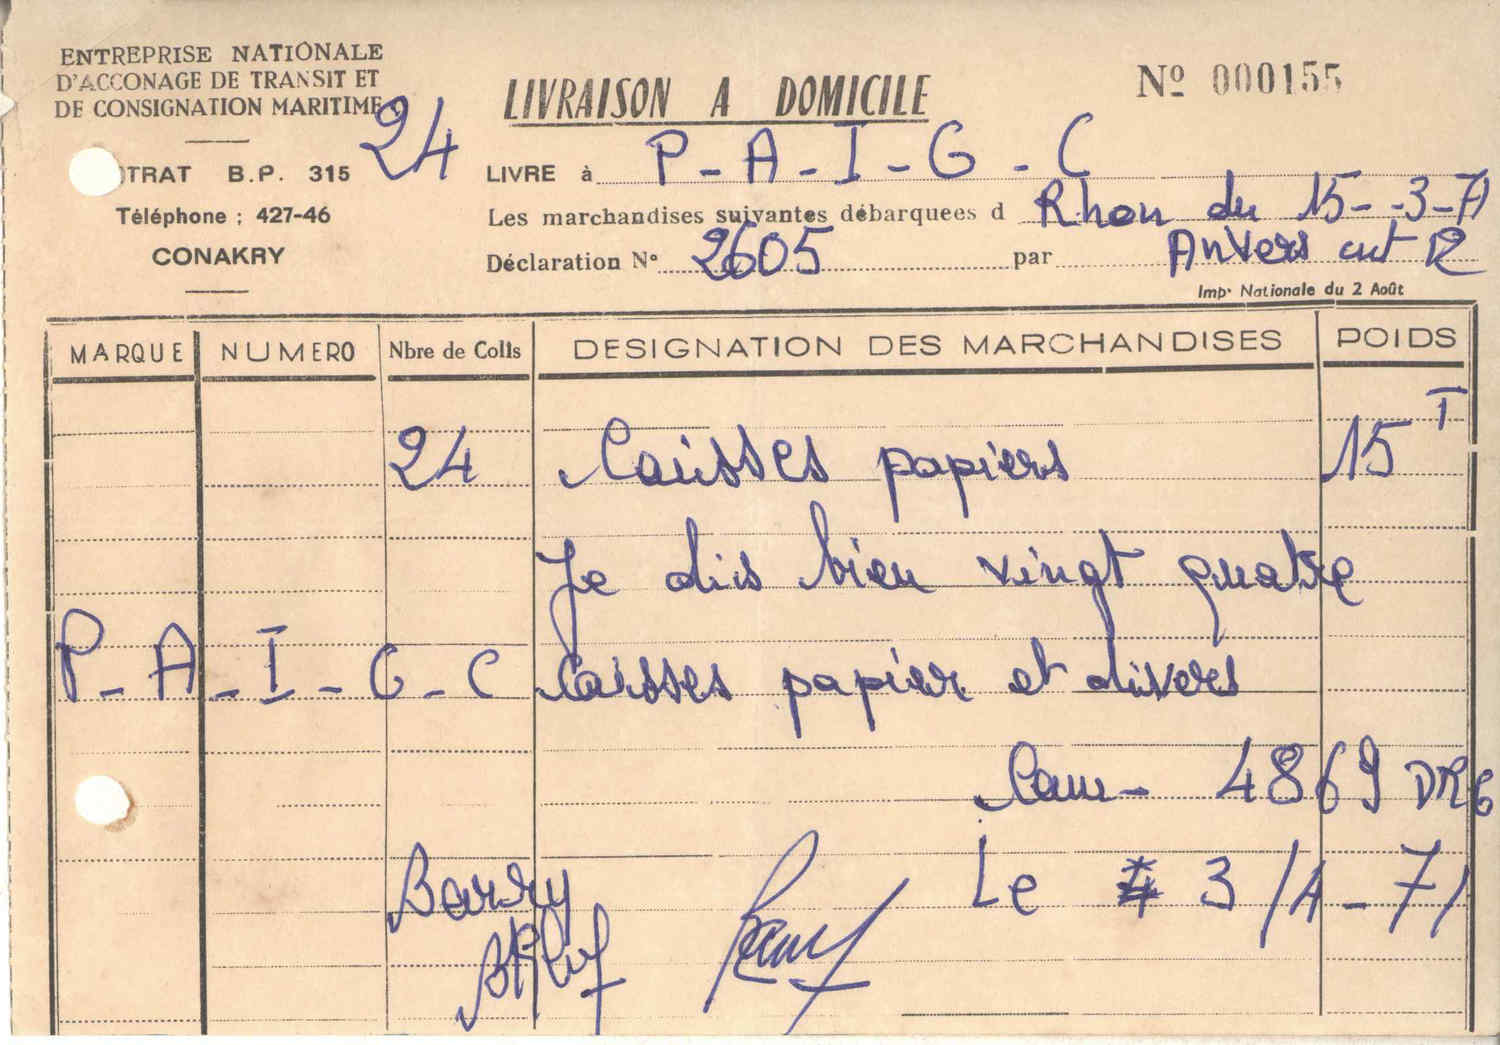 ENTREPRISE NATIONALE
D'ACCONAGE DE TRANSIT ET
DE CONSIGNATION MARITIME
TRAT B.P. 315
Téléphone : 427-46
CONAKRY
24
LIVRAISON A DOMICILE
Nº 000155
LIVRE à P-A-I-G-C
Les marchandises suivantes débarquees d Rhon du 15--3-71
Déclaration N° 2605 par Anvers
Imp. Nationale du 2 Août
MARQUE NUMERO Nbre de Colls DESIGNATION DES MARCHANDISES POIDS
24 Caisses papiers 15T
Je dis bien vingt quatre
P-A-I-G-C Caisses papier et divers
Cam- 4869 DR6
Barry
Le 3/4-71